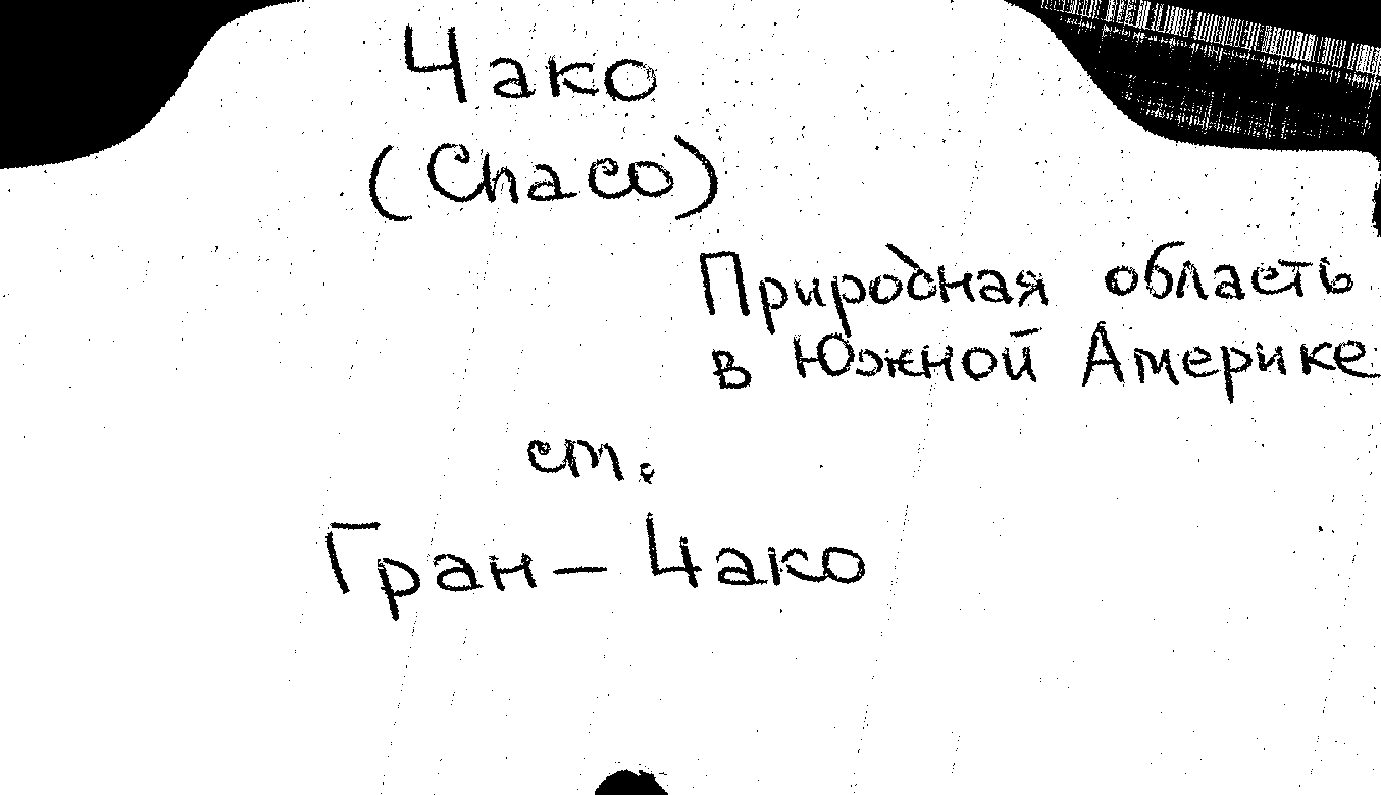 Чако
(Chaco)
Природная область
в Южной Америке
ст.
Гран-Чако